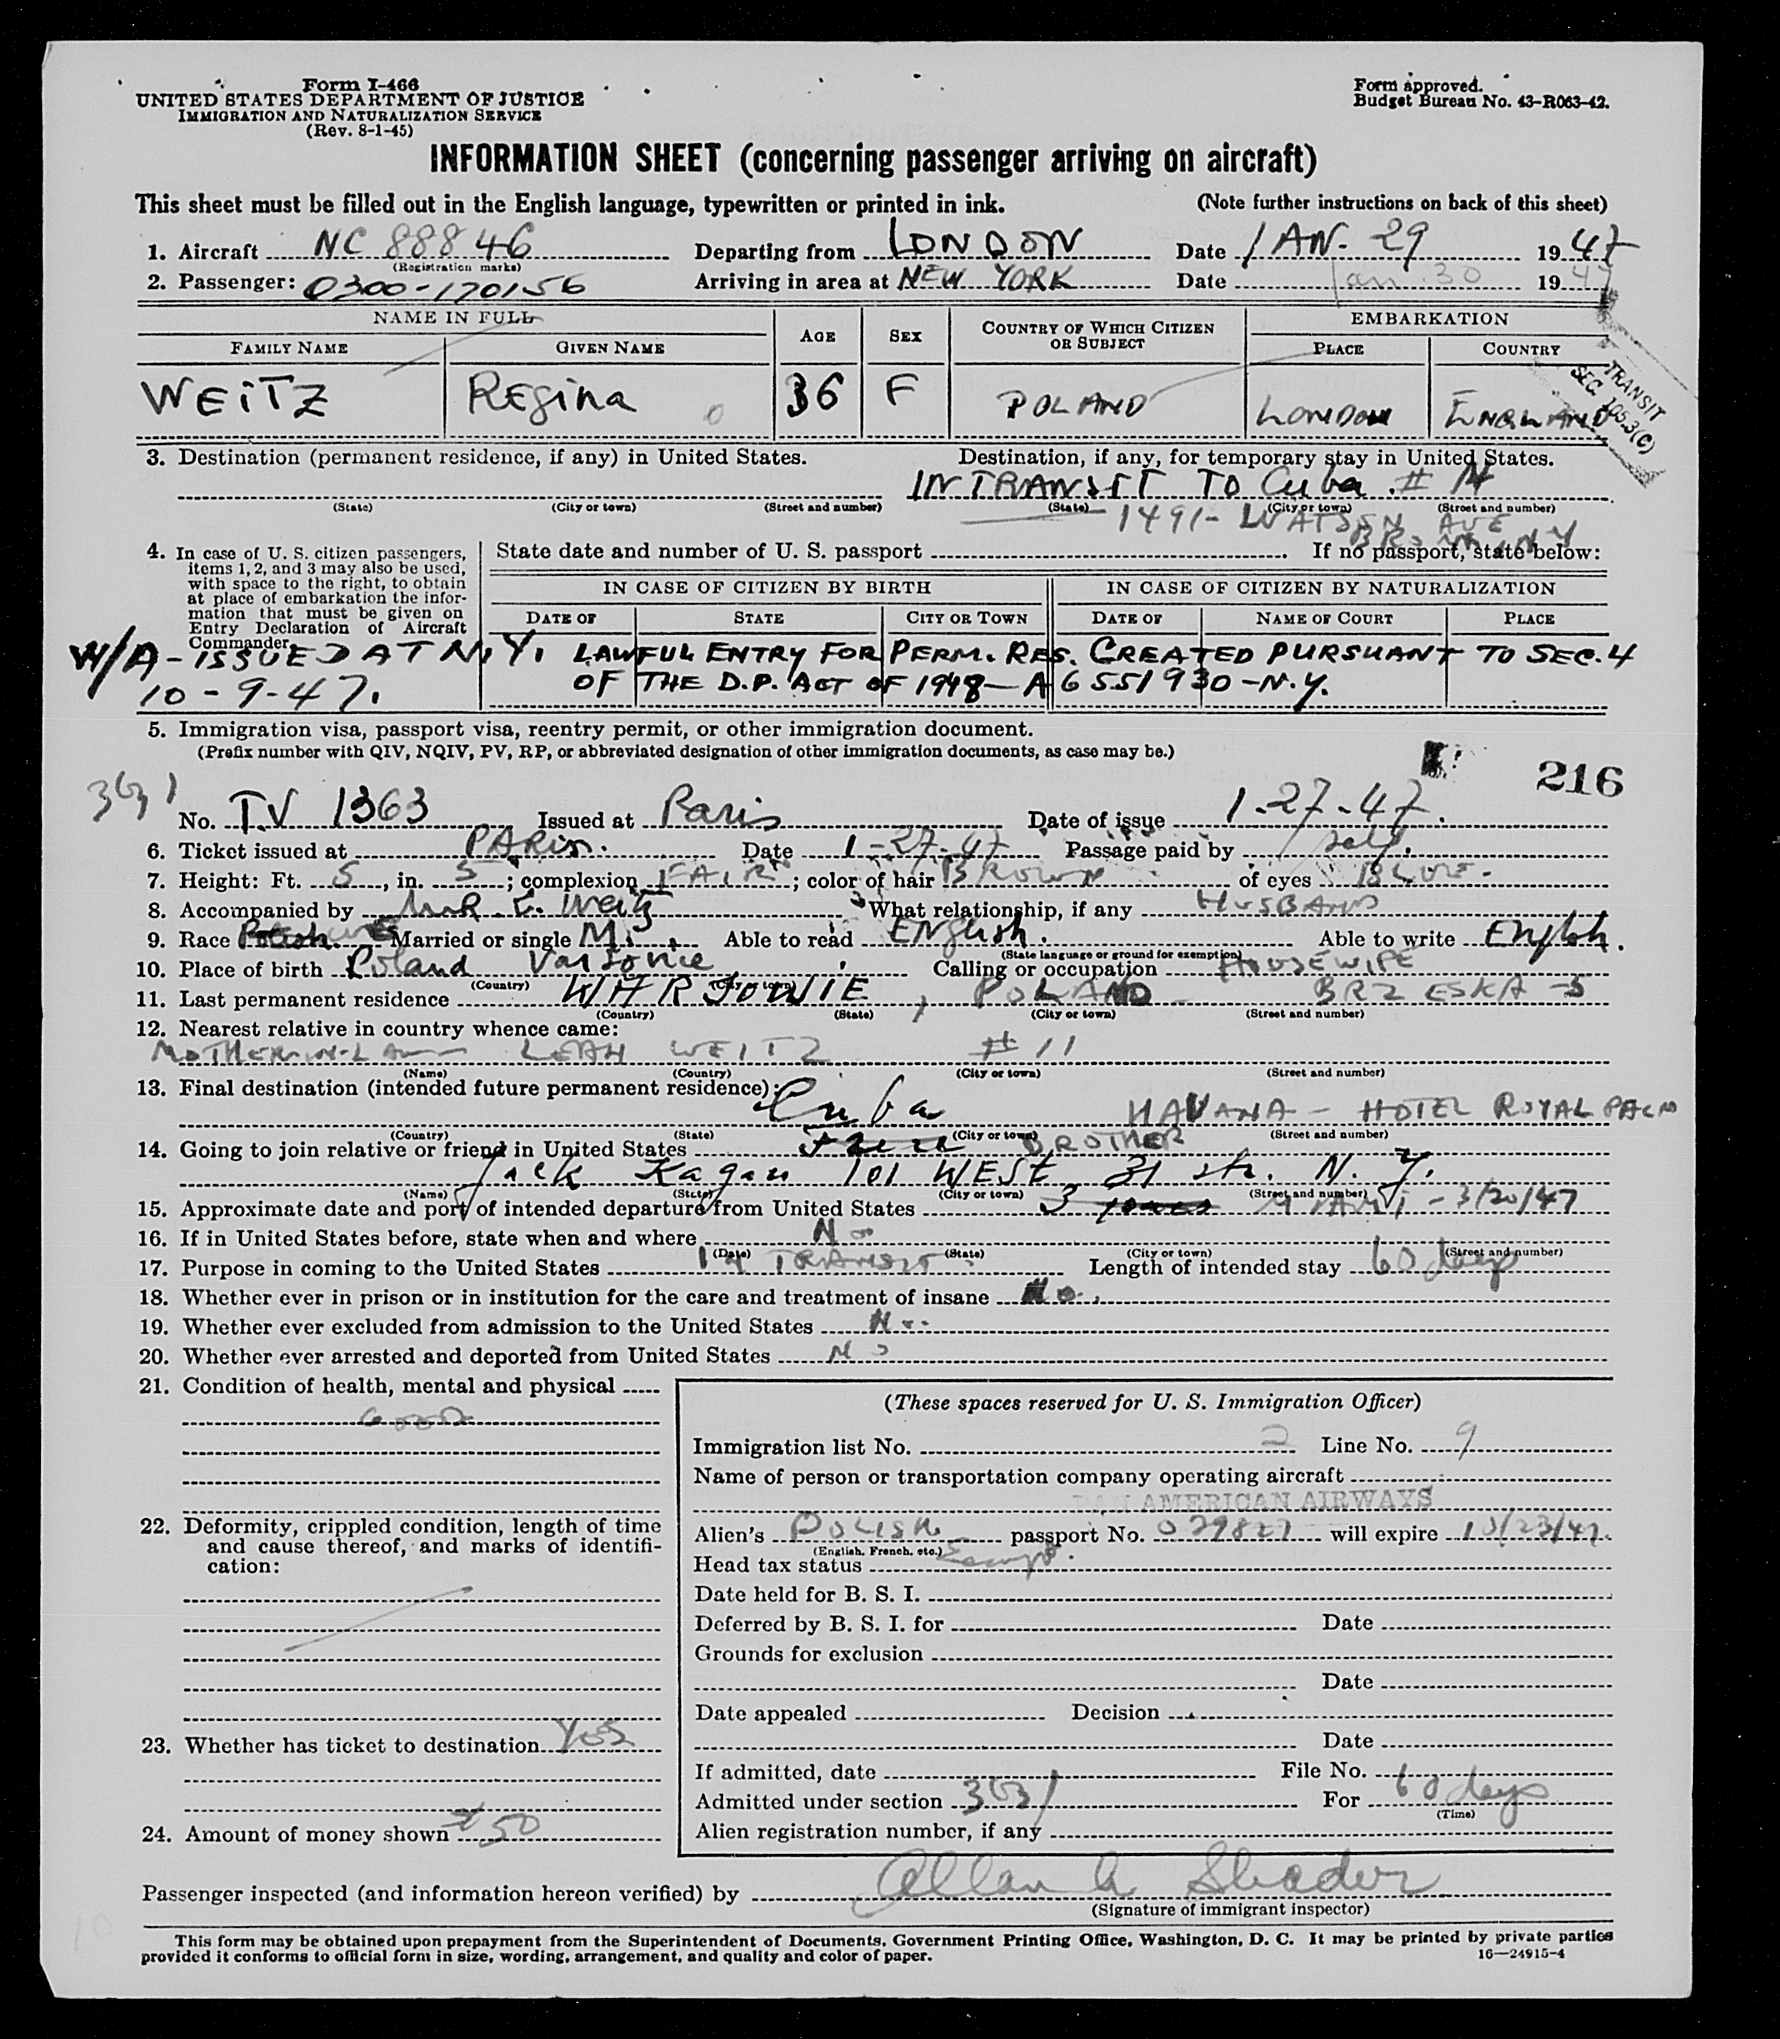 Form I-466
UNITED STATES DEPARTMENT OF JUSTICE
IMMIGRATION AND NATURALIZATION SERVICE
(Rev. 8-1-45)
Form approved.
Budget Bureau No. 43-R063-42.
INFORMATION SHEET (concerning passenger arriving on aircraft)
This sheet must be filled out in the English language, typewritten or printed in ink. (Note further instructions on back of this sheet)
1. Aircraft NC 88846 Departing from LONDON Date JAN. 29 1947
(Registration marks)
2. Passenger: 0300-170156 Arriving in area at NEW YORK Date Jan 30 1947
NAME IN FULL AGE SEX COUNTRY OF WHICH CITIZEN OR SUBJECT EMBARKATION
FAMILY NAME GIVEN NAME PLACE COUNTRY
WEITZ Regina 36 F POLAND LONDON ENGLAND
TRANSIT
SEC. 105.3(C)
3. Destination (permanent residence, if any) in United States. Destination, if any, for temporary stay in United States.
IN TRANSIT TO Cuba # 14
(State) (City or town) (Street and number) (State) (City or town) (Street and number)
1491- WATSON AVE
BRONX, N Y
4. In case of U. S. citizen passengers, items 1, 2, and 3 may also be used, with space to the right, to obtain at place of embarkation the information that must be given on Entry Declaration of Aircraft Commander.
State date and number of U. S. passport If no passport, state below:
IN CASE OF CITIZEN BY BIRTH IN CASE OF CITIZEN BY NATURALIZATION
DATE OF STATE CITY OR TOWN DATE OF NAME OF COURT PLACE
W/A - ISSUED AT N.Y. LAWFUL ENTRY FOR PERM. RES. CREATED PURSUANT TO SEC. 4
10-9-47. OF THE D.P. ACT OF 1948 - A6551930 - N.Y.
5. Immigration visa, passport visa, reentry permit, or other immigration document.
(Prefix number with QIV, NQIV, PV, RP, or abbreviated designation of other immigration documents, as case may be.)
216
No. T.V 1363 Issued at Paris Date of issue 1-27-47.
6. Ticket issued at PARis. Date 1-27-47 Passage paid by self.
7. Height: Ft. 5, in. 5; complexion FAIR; color of hair BROWN of eyes BLUE.
8. Accompanied by MR. E. Weitz What relationship, if any HUSBAND
9. Race Polish Married or single M. Able to read English. Able to write English.
(State language or ground for exemption)
10. Place of birth Poland Varsovie Calling or occupation HOUSEWIFE
(Country) (City or town)
11. Last permanent residence WARSOWIE, POLAND - BRZESKA -5
(Country) (State) (City or town) (Street and number)
12. Nearest relative in country whence came:
MOTHER-IN-LAW LEAH WEITZ # 11
(Name) (Country) (City or town) (Street and number)
13. Final destination (intended future permanent residence):
Cuba HAVANA - HOTEL ROYAL PALM
(Country) (State) (City or town) (Street and number)
14. Going to join relative or friend in United States BROTHER
Jack Kagan 101 WEST 31 str. N. Y.
(Name) (State) (City or town) (Street and number)
15. Approximate date and port of intended departure from United States 3 MIAMI - 3/20/47
16. If in United States before, state when and where No
(Date) (State) (City or town) (Street and number)
17. Purpose in coming to the United States IN TRANSIT Length of intended stay 60 days
18. Whether ever in prison or in institution for the care and treatment of insane No.
19. Whether ever excluded from admission to the United States No.
20. Whether ever arrested and deported from United States No
21. Condition of health, mental and physical
GOOD
22. Deformity, crippled condition, length of time and cause thereof, and marks of identification:
23. Whether has ticket to destination Yes
24. Amount of money shown $50
(These spaces reserved for U. S. Immigration Officer)
Immigration list No. 2 Line No. 9
Name of person or transportation company operating aircraft
PAN AMERICAN AIRWAYS
Alien's POLISH passport No. 029827 will expire 10/23/47.
(English, French, etc.)
Head tax status Exempt.
Date held for B. S. I.
Deferred by B. S. I. for Date
Grounds for exclusion
Date
Date appealed Decision
Date
If admitted, date File No.
Admitted under section 3(3) For 60 days
(Time)
Alien registration number, if any
Passenger inspected (and information hereon verified) by Allan A Shader
(Signature of immigrant inspector)
This form may be obtained upon prepayment from the Superintendent of Documents, Government Printing Office, Washington, D. C. It may be printed by private parties
provided it conforms to official form in size, wording, arrangement, and quality and color of paper. 16—24915-4